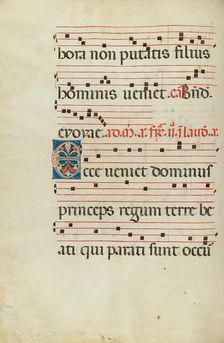 hora non putatis filius
hominis veniet. cā Bñd.
evovae. ro. m̄. a. fr̄. ij. i laud. a.
Ecce veniet dominus
princeps regum terre be
ati qui parati sunt occu